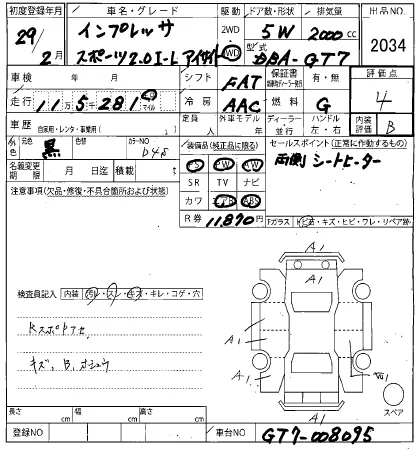 初度登録年月 車名・グレード 駆動 ドア数・形状 排気量 出品NO.
29年 2月 インプレッサ スポーツ2.0I-L アイサイト 2WD 4WD 5W 2000cc 2034
型式 DBA-GT7
車検 年 月 シフト FAT 保証書 有・無 評価点 4
走行 11万5千281 km マイル 冷房 AAC 燃料 G
車歴 自家用・レンタ・事業用( ) 定員 人 外車モデル 年 ディーラー 並行 ハンドル 左・右 内装評価 B
外色 元色 黒 色替 カラーNO D4S 装備品(純正品に限る) セールスポイント(正常に作動するもの)
名義変更期限 月 日迄 積載 PS PW 両側シートヒーター
SR TV ナビ
注意事項(欠品・修復・不具合箇所および状態) カワ エアB ABS
R券 11,870円 Fガラス
A1
検査員記入 内装 汚レ・スレ・キズ・キレ・コゲ・穴
A1 A1
Rスポアセ
A1
キズ、B、オショウ
A1
スペア
長さ cm 幅 cm 高さ cm
A1
登録NO 車台NO GT7-008095